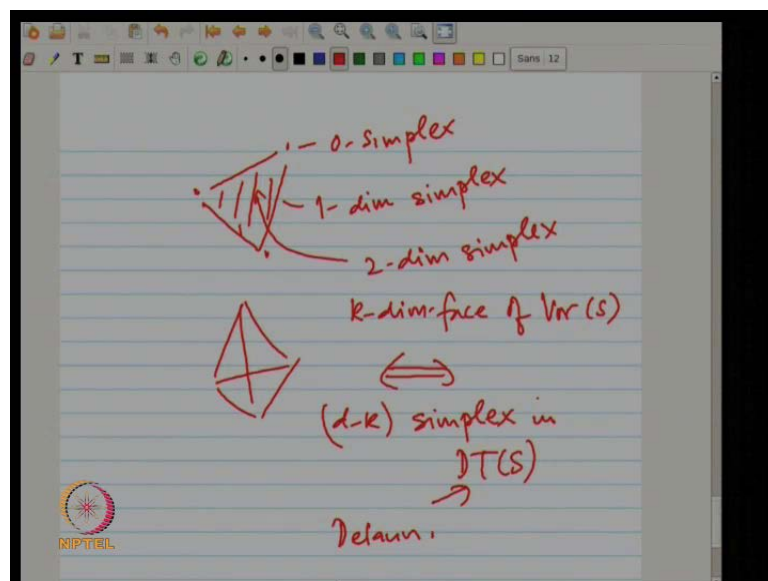 Sans 12
0-simplex
1-dim simplex
2-dim simplex
k-dim-face of Vor(S)
(d-k) simplex in
DT(S)
Delaun.
NPTEL